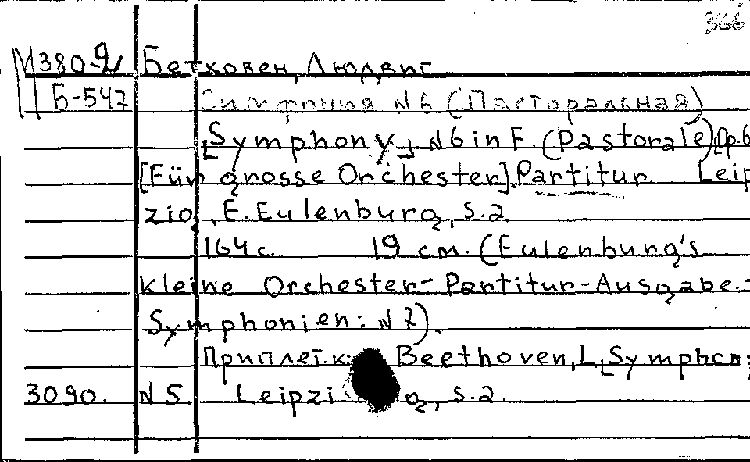 366
М380-2 Бетховен, Людвиг
Б-542 Симфония №6 (Пасторальная)
[Symphony] №6 in F. (Pastorale) Op.6
[Für grosse Orchester]. Partitur Leip
zig, E. Eulenburg, s.a.
164 с. 19 см. (Eulenburg's
kleine Orchester-Partitur-Ausgabe.-
Symphonien: №2).
Приплет. к: Beethoven, L. [Sympho
3090. №5. Leipzi g, s.a.